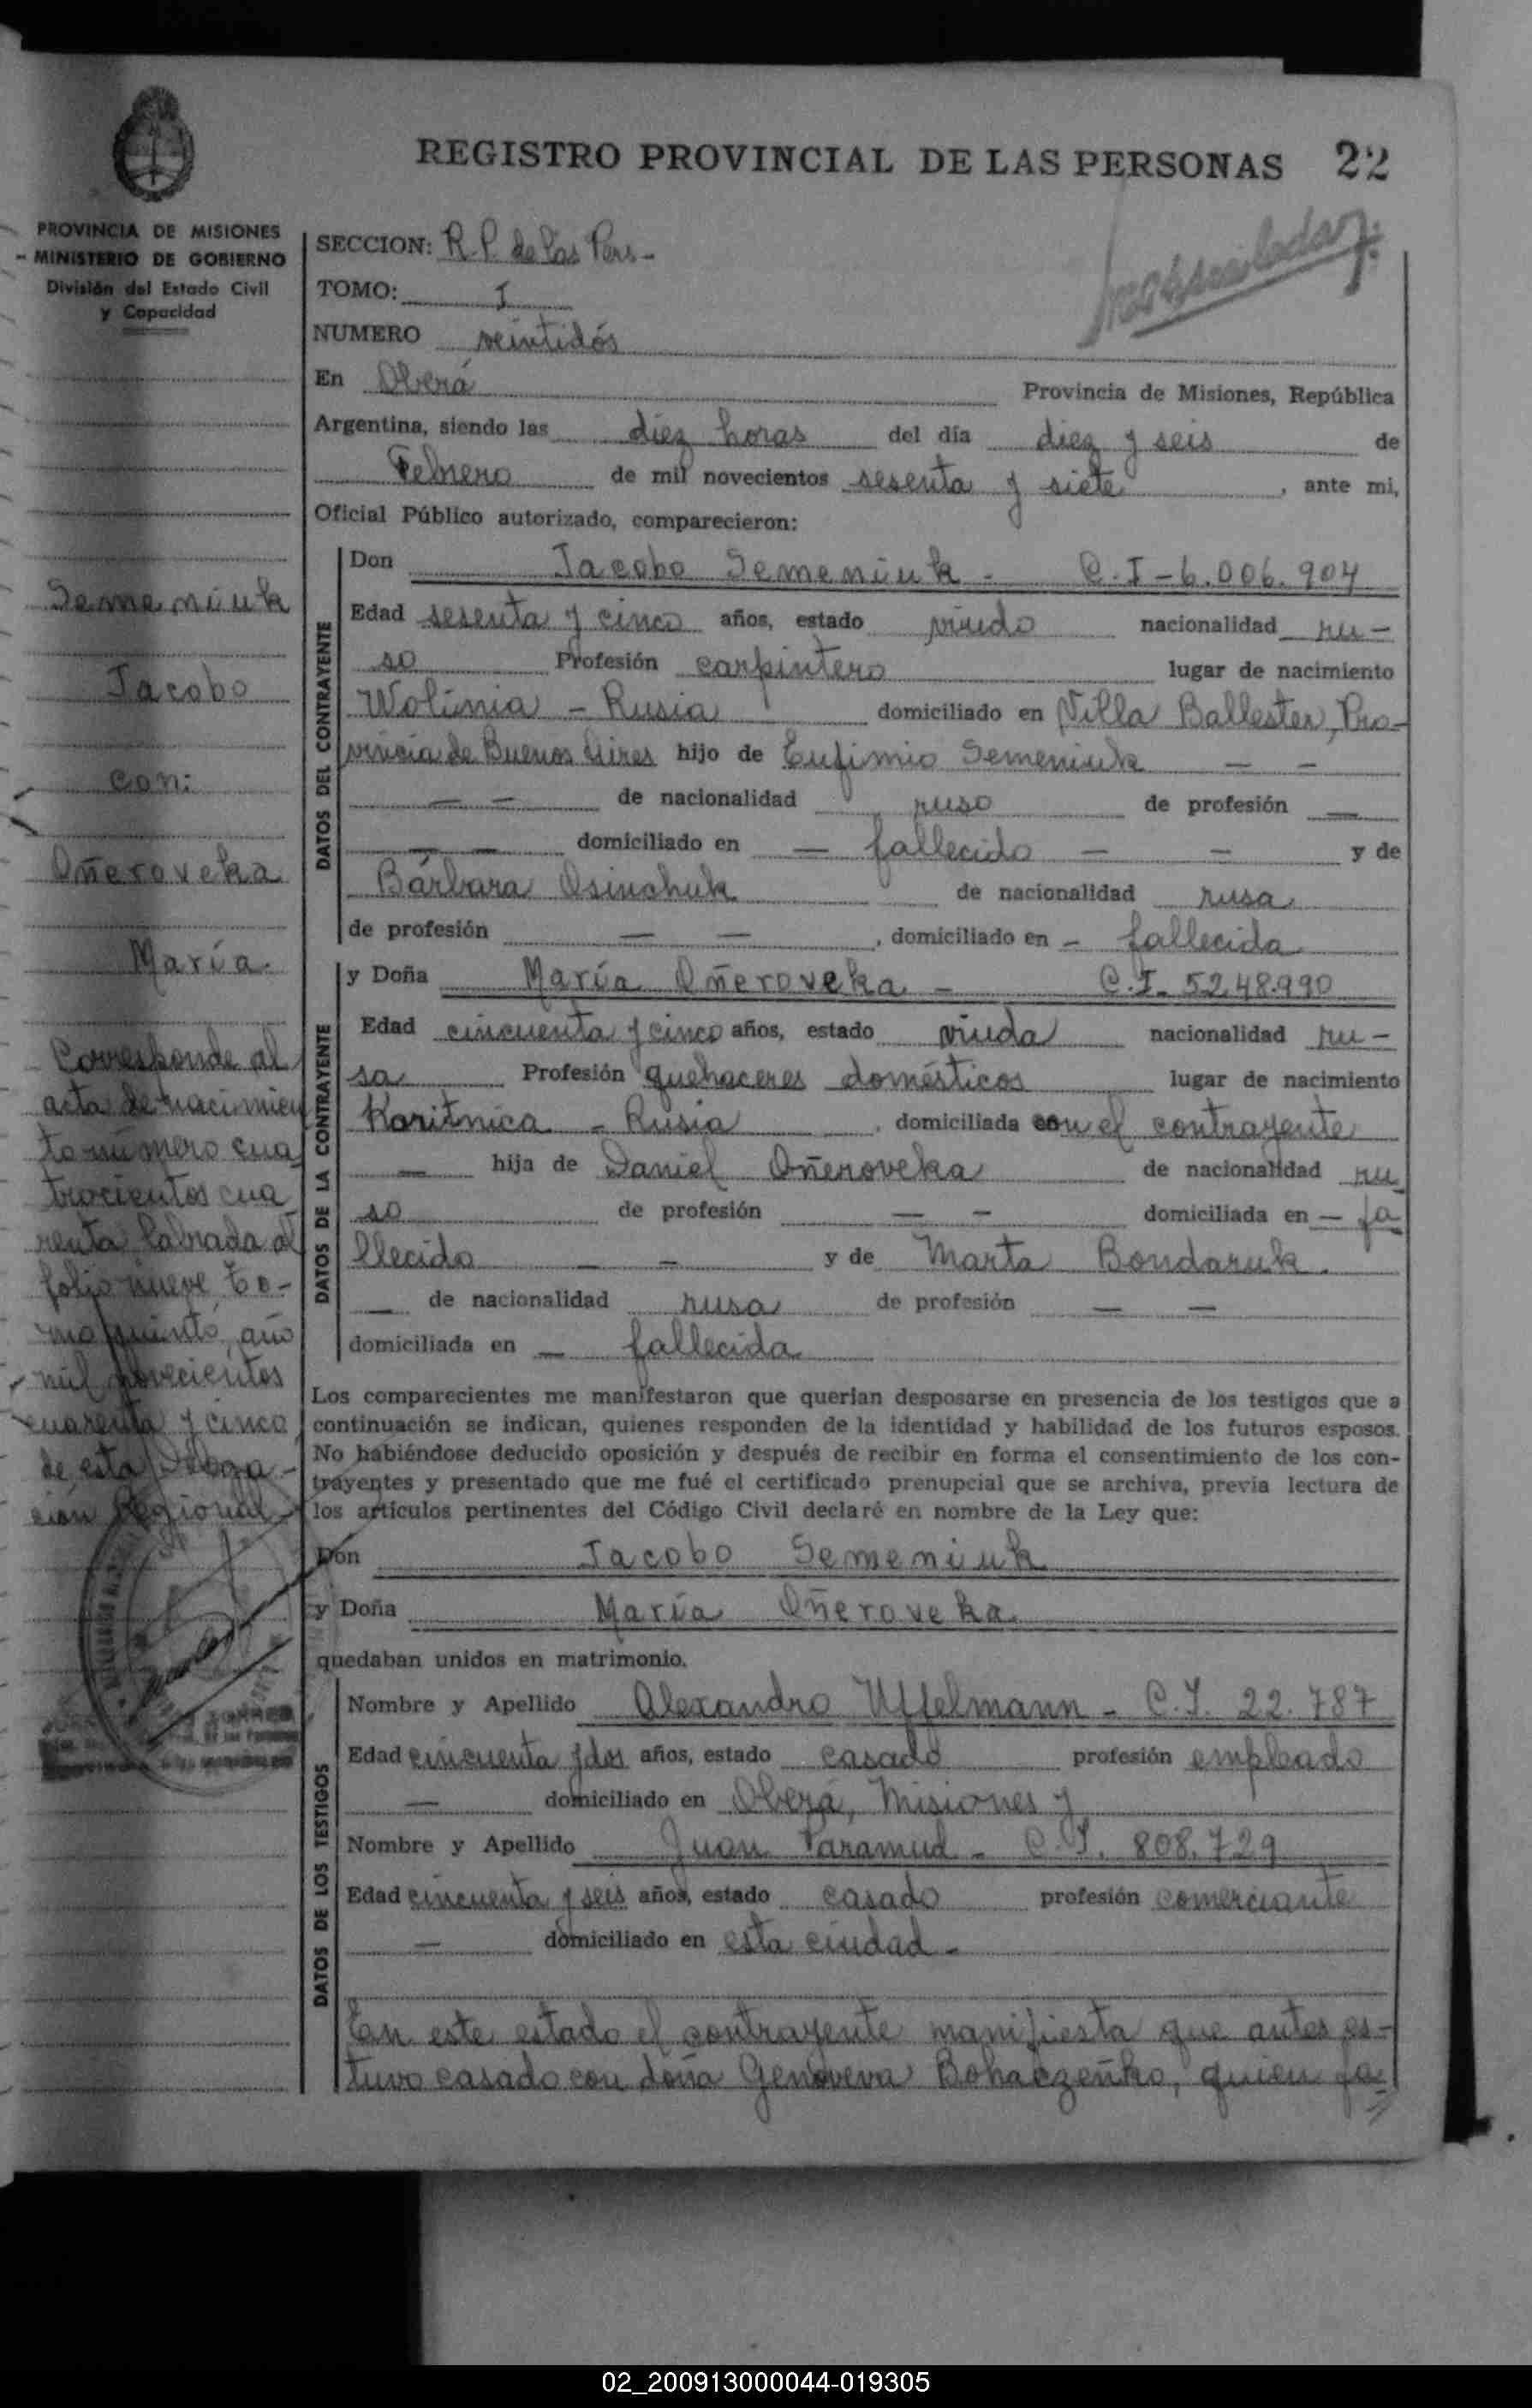 REGISTRO PROVINCIAL DE LAS PERSONAS 22
PROVINCIA DE MISIONES
MINISTERIO DE GOBIERNO
División del Estado Civil
y Capacidad
Semeniuk
Jacobo
con:
Oñeroveka
María.
Corresponde al
acta de nacimien
to número cua
trocientos cua
renta labrada al
folio nueve, to-
mo quinto, año
mil novecientos
cuarenta y cinco
de esta Delega-
ción Regional
SECCION: R.P. de las Pers-
TOMO: I
NUMERO veintidós
En Oberá Provincia de Misiones, República
Argentina, siendo las diez horas del día diez y seis de
Febrero de mil novecientos sesenta y siete, ante mi,
Oficial Público autorizado, comparecieron:
DATOS DEL CONTRAYENTE
Don Jacobo Semeniuk - C.I-6.006.904
Edad sesenta y cinco años, estado viudo nacionalidad ru-
so Profesión carpintero lugar de nacimiento
Wolinia - Rusia domiciliado en Villa Ballester, Pro-
vincia de Buenos Aires hijo de Eufimio Semeniuk - -
- - de nacionalidad ruso de profesión -
- - domiciliado en - fallecido - - y de
Bárbara Osinchuk de nacionalidad rusa
de profesión - -, domiciliado en - fallecida
DATOS DE LA CONTRAYENTE
y Doña María Oñeroveka - C.I. 5.248.990
Edad cincuenta y cinco años, estado viuda nacionalidad ru-
sa Profesión quehaceres domésticos lugar de nacimiento
Koritnica - Rusia, domiciliada con el contrayente
- hija de Daniel Oñeroveka de nacionalidad ru
so de profesión - - domiciliada en - fa
llecido - - y de Marta Bondaruk.
- de nacionalidad rusa de profesión - -
domiciliada en - fallecida
Los comparecientes me manifestaron que querian desposarse en presencia de los testigos que a
continuación se indican, quienes responden de la identidad y habilidad de los futuros esposos.
No habiéndose deducido oposición y después de recibir en forma el consentimiento de los con-
trayentes y presentado que me fué el certificado prenupcial que se archiva, previa lectura de
los artículos pertinentes del Código Civil declaré en nombre de la Ley que:
Don Jacobo Semeniuk
y Doña María Oñeroveka
quedaban unidos en matrimonio.
DATOS DE LOS TESTIGOS
Nombre y Apellido Alexandro Uffelmann - C.I. 22.787
Edad cincuenta y dos años, estado casado profesión empleado
- domiciliado en Oberá, Misiones y
Nombre y Apellido Juan Paramud - C.I. 808.729
Edad cincuenta y seis años, estado casado profesión comerciante
- domiciliado en esta ciudad -
En este estado el contrayente manifiesta que antes es-
tuvo casado con doña Genoveva Bohaczenko, quien fa
02_200913000044-019305